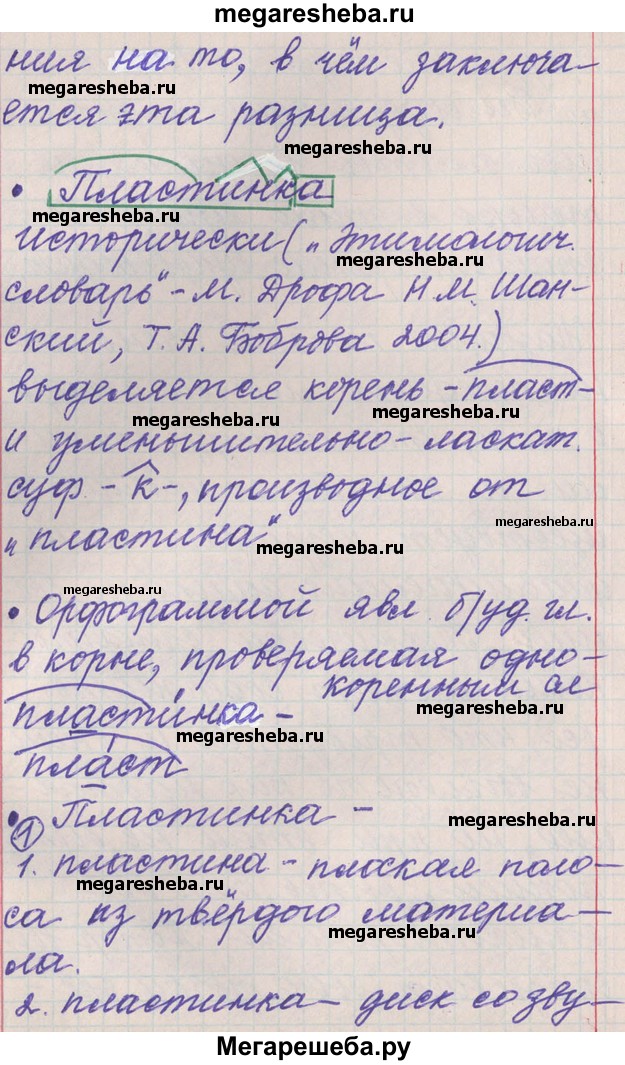 megaresheba.ru
ния на то, в чём заключа-
megaresheba.ru
ется эта разница.
megaresheba.ru
• Пластинка
megaresheba.ru
Исторически („Этимологич.
megaresheba.ru
словарь“ - М. Дрофа Н.М. Шан-
ский, Т.А. Боброва 2004.)
выделяется корень -пласт-
megaresheba.ru
megaresheba.ru
и уменьшительно-ласкат.
суф -к-, производное от
megaresheba.ru
„пластина“
megaresheba.ru
megaresheba.ru
• Орфограммой явл. б/уд. гл.
в корне, проверяемая одно-
коренным сл
megaresheba.ru
пластинка -
megaresheba.ru
пласт
• Пластинка -
1
1. пластина - плоская поло-
megaresheba.ru
са из твёрдого материа-
megaresheba.ru
ла.
2. пластинка - диск со зву-
Мегарешеба.ру